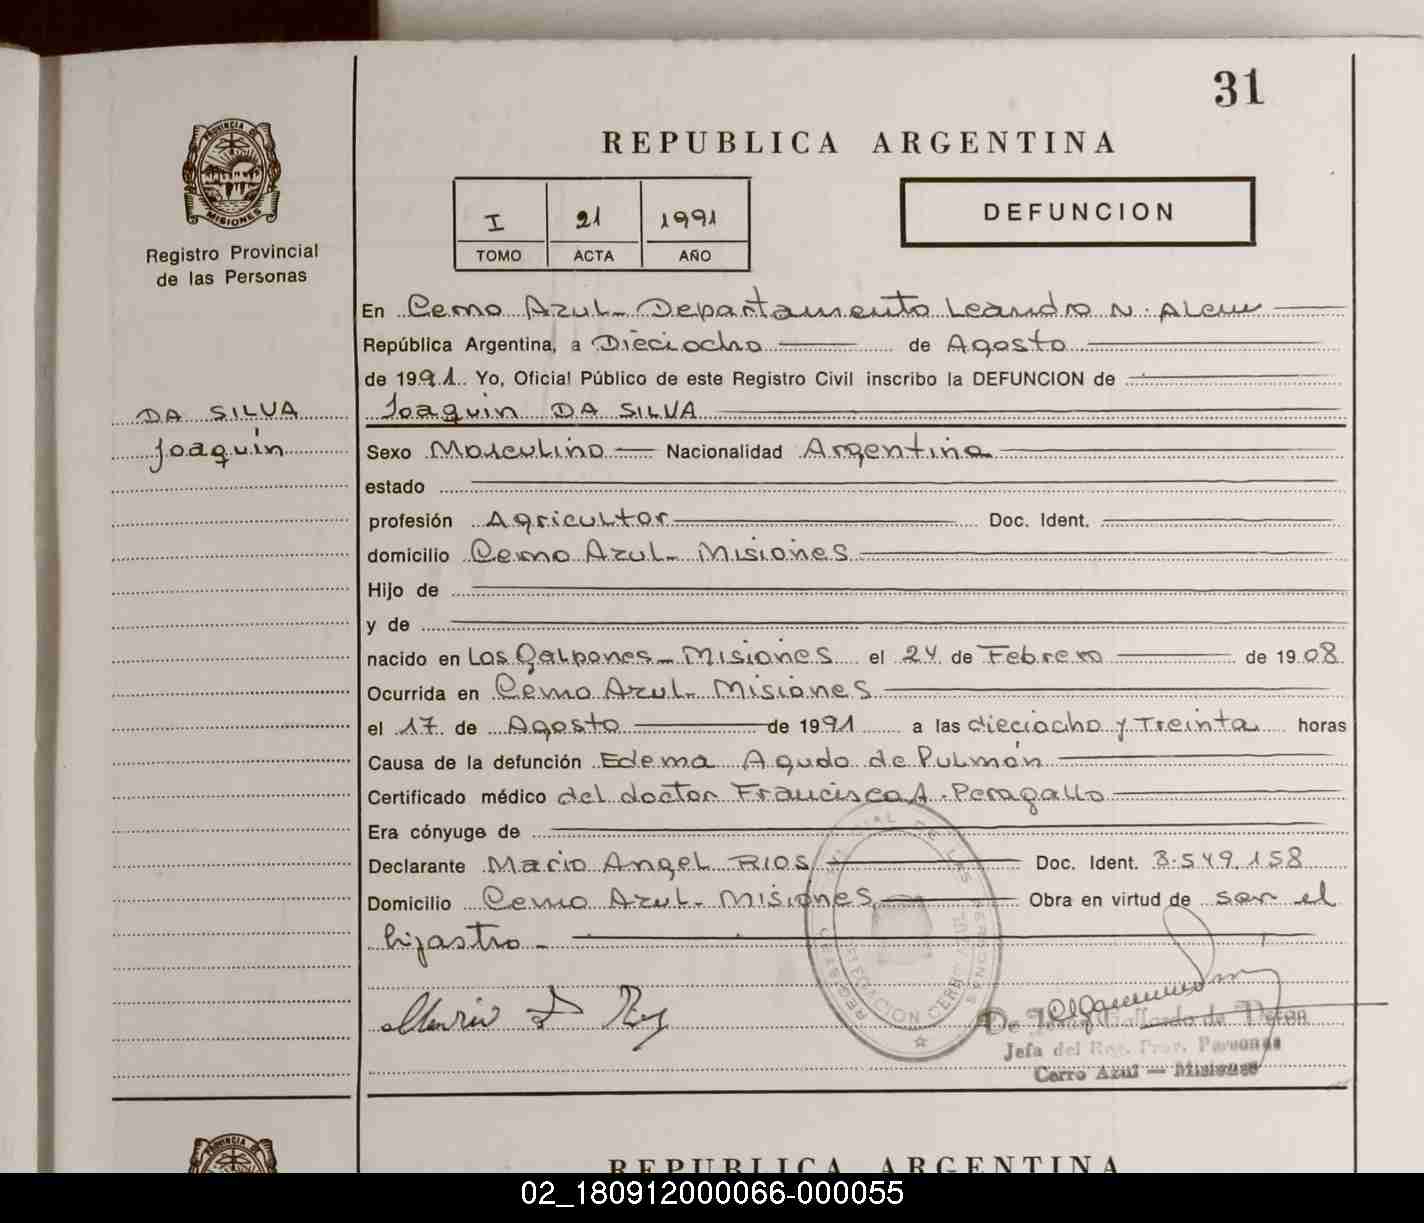 31
PROVINCIA DE
MISIONES
Registro Provincial
de las Personas
REPUBLICA ARGENTINA
I 21 1991
TOMO ACTA AÑO
DEFUNCION
En Cerro Azul - Departamento Leandro N. Alem
República Argentina, a Dieciocho de Agosto
de 1991. Yo, Oficial Público de este Registro Civil inscribo la DEFUNCION de
DA SILVA
Joaquin
Joaquin DA SILVA
Sexo Masculino Nacionalidad Argentina
estado
profesión Agricultor Doc. Ident.
domicilio Cerro Azul - Misiones
Hijo de
y de
nacido en Los Galpones - Misiones el 24 de Febrero de 1908
Ocurrida en Cerro Azul - Misiones
el 17 de Agosto de 1991 a las dieciocho y Treinta horas
Causa de la defunción Edema Agudo de Pulmón
Certificado médico del doctor Francisco A. Peragallo
Era cónyuge de
Declarante Mario Angel RIOS Doc. Ident. 3.549.158
Domicilio Cerro Azul - Misiones Obra en virtud de ser el
hijastro -
Jefa del Reg. Prov. Personas
Cerro Azul — Misiones
PROVINCIA DE
REPUBLICA ARGENTINA
02_180912000066-000055